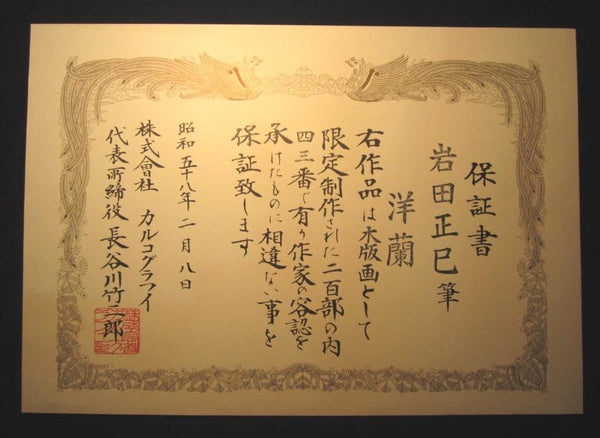 保証書
岩田正巳筆
洋蘭
右作品は木版画として
限定制作された二百部の内
四三番で有り作家の容認を
承けたものに相違ない事を
保証致します
昭和五十八年二月八日
株式會社 カルコグラフイ
代表取締役 長谷川竹 郎